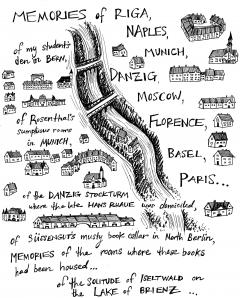 MEMORIES of RIGA,
NAPLES,
of my student's
den in BERN,
MUNICH,
DANZIG
MOSCOW,
of Rosenthal's
sumptuous rooms
in MUNICH,
FLORENCE,
BASEL,
PARIS...
of the DANZIG STOCKTURM
where the late HANS RHAUE was domiciled,
of SÜSSENGUT'S musty book cellar in North Berlin,
MEMORIES of the rooms where these books
had been housed...
of the SOLITUDE of ISELTWALD on
the LAKE of BRIENZ ...